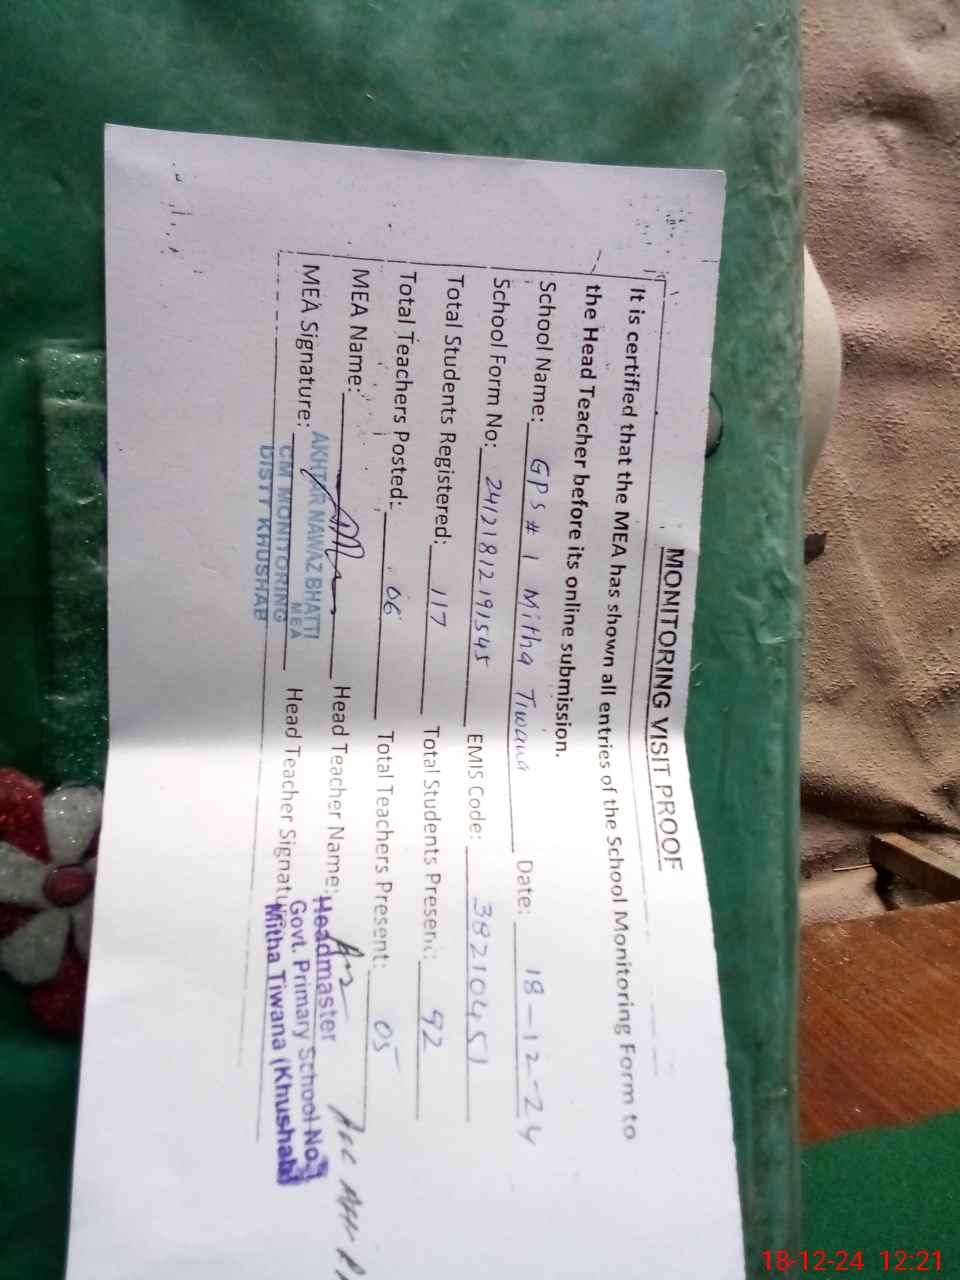 MONITORING VISIT PROOF
It is certified that the MEA has shown all entries of the School Monitoring Form to
the Head Teacher before its online submission.
School Name: GPS # 1 Mitha Tiwana Date: 18-12-24
School Form No: 24121812191545 EMIS Code: 38210451
Total Students Registered: 117 Total Students Present: 92
Total Teachers Posted: 06 Total Teachers Present: 05
MEA Name: Head Teacher Name:
MEA Signature: Head Teacher Signature
AKHTAR NAWAZ BHATTI
MEA
CM MONITORING
DISTT KHUSHAB
Headmaster
Govt. Primary School No.1
Mitha Tiwana (Khushab)
18-12-24 12:21